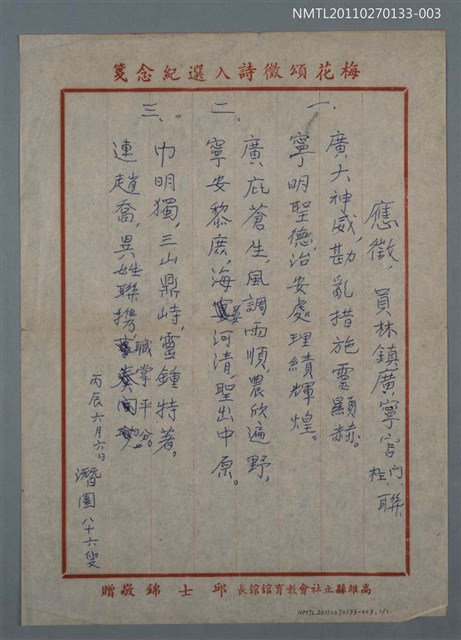 NMTL20110270133-003
梅花頌徵詩入選紀念箋
應徵，員林鎮廣寧宮門柱聯
一、
廣大神威，勘亂措施靈顯赫。
寧明聖德，治安處理績輝煌。
二、
廣庇蒼生，風調雨順，農欣遍野，
寧安黎庶，海晏河清聖出中原。
三、
巾明獨，三山鼎峙，靈鍾特著。
連趙喬，異姓聯携職掌平分。
丙辰六月六日
潛園八十六叟
高雄縣立社會教育館館長 邱士錦敬贈
NMTL20110270133-003, 1/1